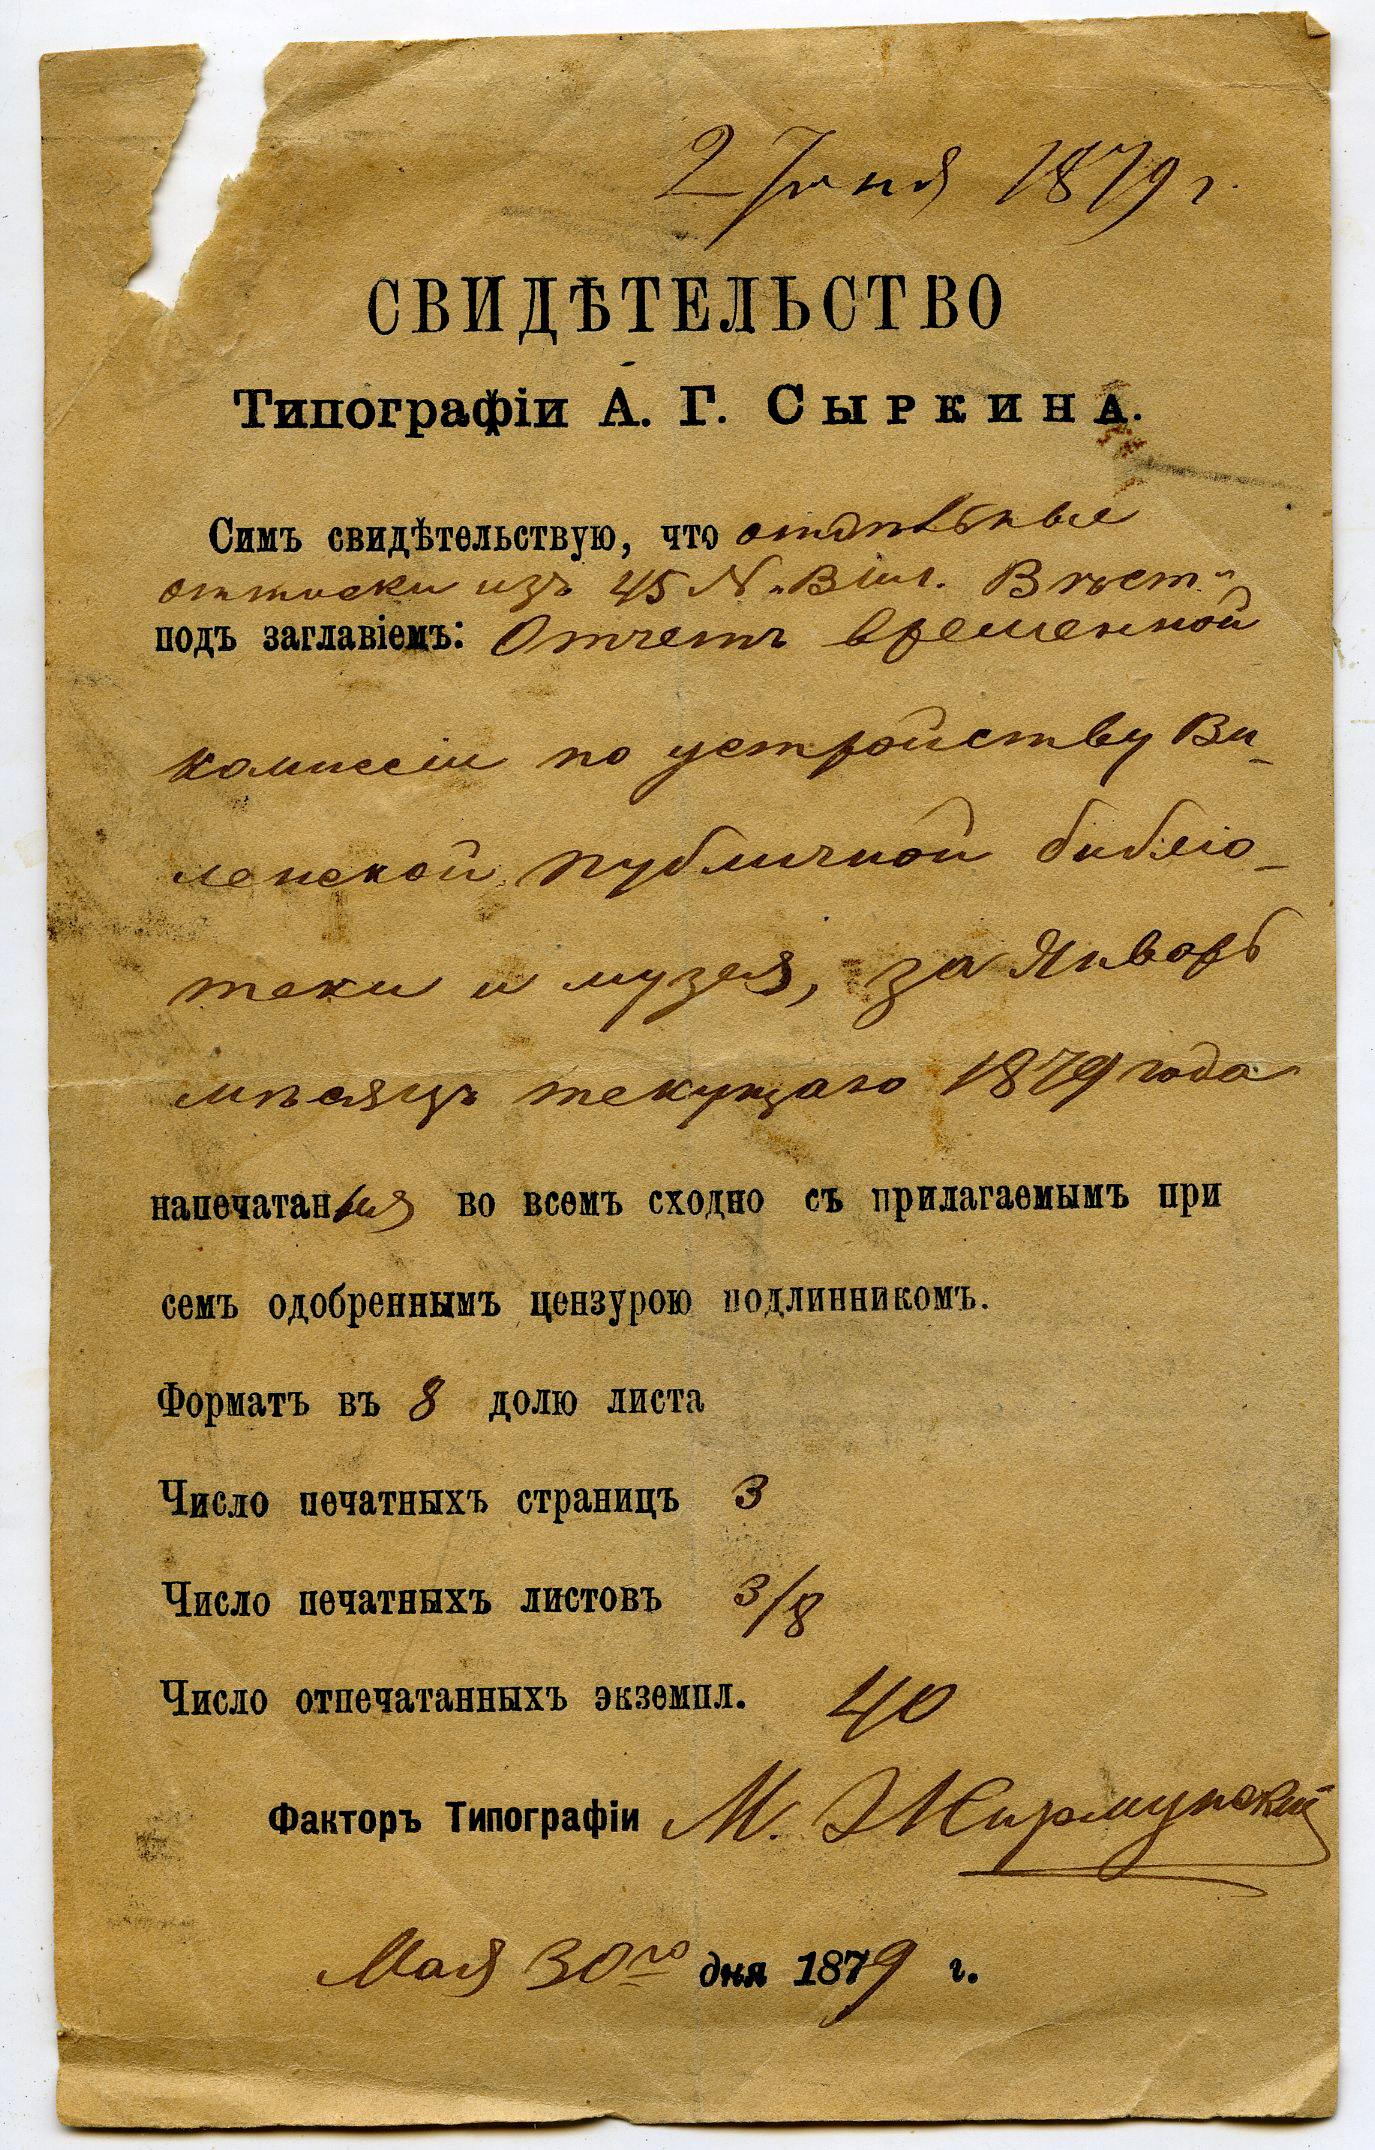 2 Іюня 1879 г.
СВИДѢТЕЛЬСТВО
Типографіи А. Г. Сыркина.
Симъ свидѣтельствую, что отдѣльные
оттиски изъ 45 N „Вил. Вѣст."
подъ заглавіемъ: Отчетъ временной
коммиссіи по устройству Ви-
ленской публичной библіо-
теки и музея, за Январь
мѣсяцъ текущаго 1879 года
напечатаныя во всемъ сходно съ прилагаемымъ при
семъ одобреннымъ цензурою подлинникомъ.
Форматъ въ 8 долю листа
Число печатныхъ страницъ 3
Число печатныхъ листовъ 3/8
Число отпечатанныхъ экземпл. 40
Факторъ Типографіи М. Жирмунскій
Мая 30го дня 1879 г.